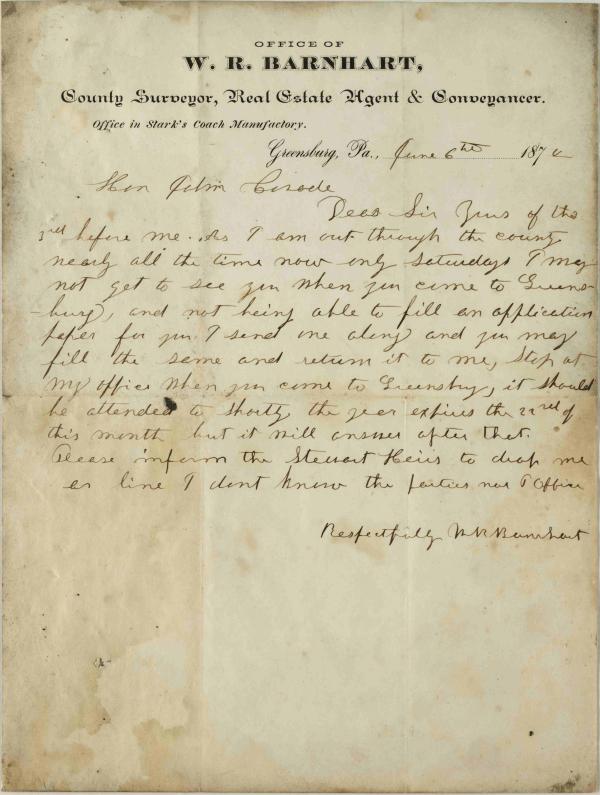 OFFICE OF
W. R. BARNHART,
County Surveyor, Real Estate Agent & Conveyancer.
Office in Stark's Coach Manufactory.
Greensburg, Pa., June 6th 187
Hon John Covode
Dear Sir Yours of the
3rd before me. As I am out through the county
nearly all the time now only Saturdays I may
not get to see you when you come to Greens-
-burg, and not being able to fill an application
paper for you I send one along and you may
fill the same and return it to me, Stop at
my office when you come to Greensburg, it should
be attended to shortly the year expires the 22nd of
this month but it will answer after that.
Please inform the Stewart Heirs to drop me
a line I dont know the parties nor P Office
Respectfully W R Barnhart